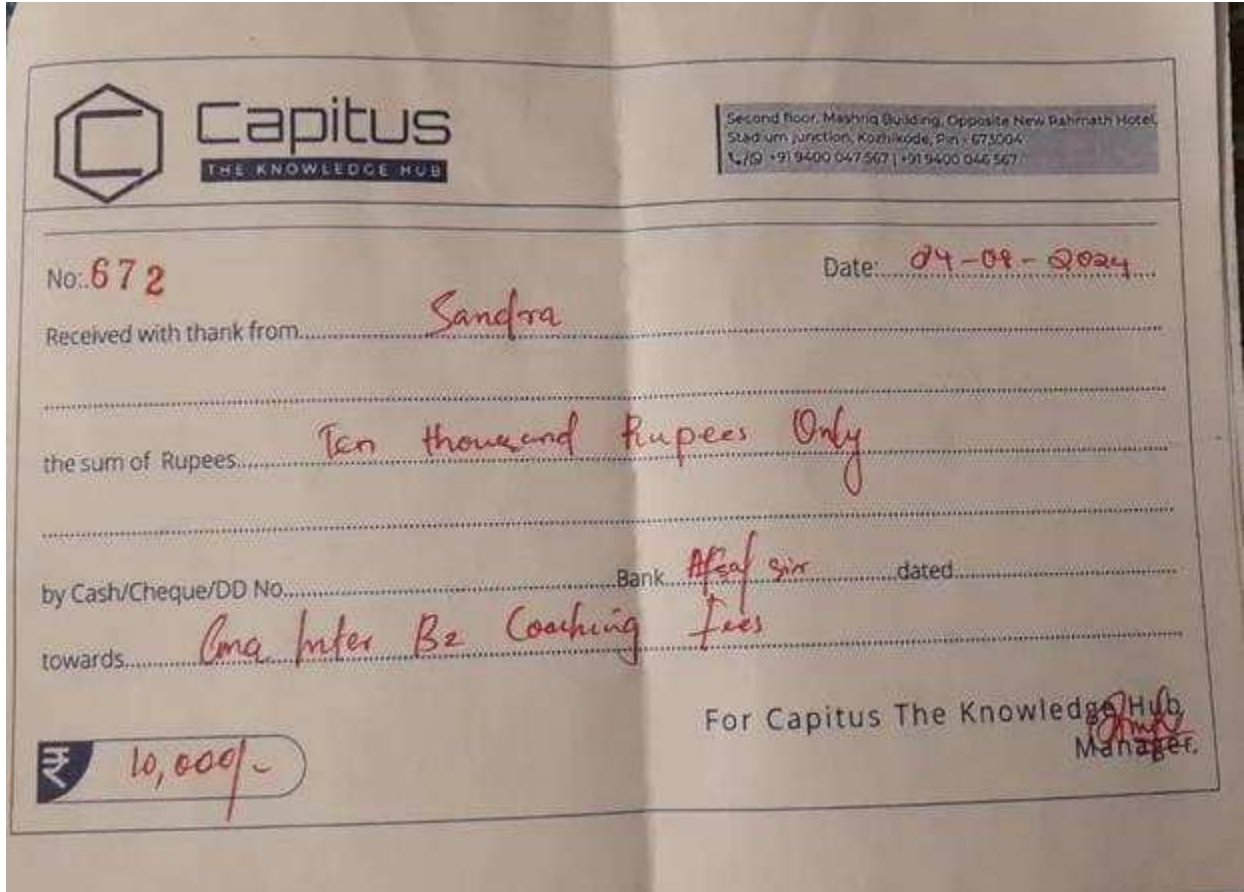 Capitus
THE KNOWLEDGE HUB
Second floor, Mashriq Building, Opposite New Rahmath Hotel,
Stadium junction, Kozhikode, Pin - 673004
+91 9400 047 567 | +91 9400 046 567
No:.672
Date: 04-08-2024
Received with thank from Sandra
the sum of Rupees Ten thousand Rupees Only
by Cash/Cheque/DD No. Bank Afsal sir dated
towards Cma Inter B2 Coaching Fees
For Capitus The Knowledge Hub
Manager.
₹ 10,000/-